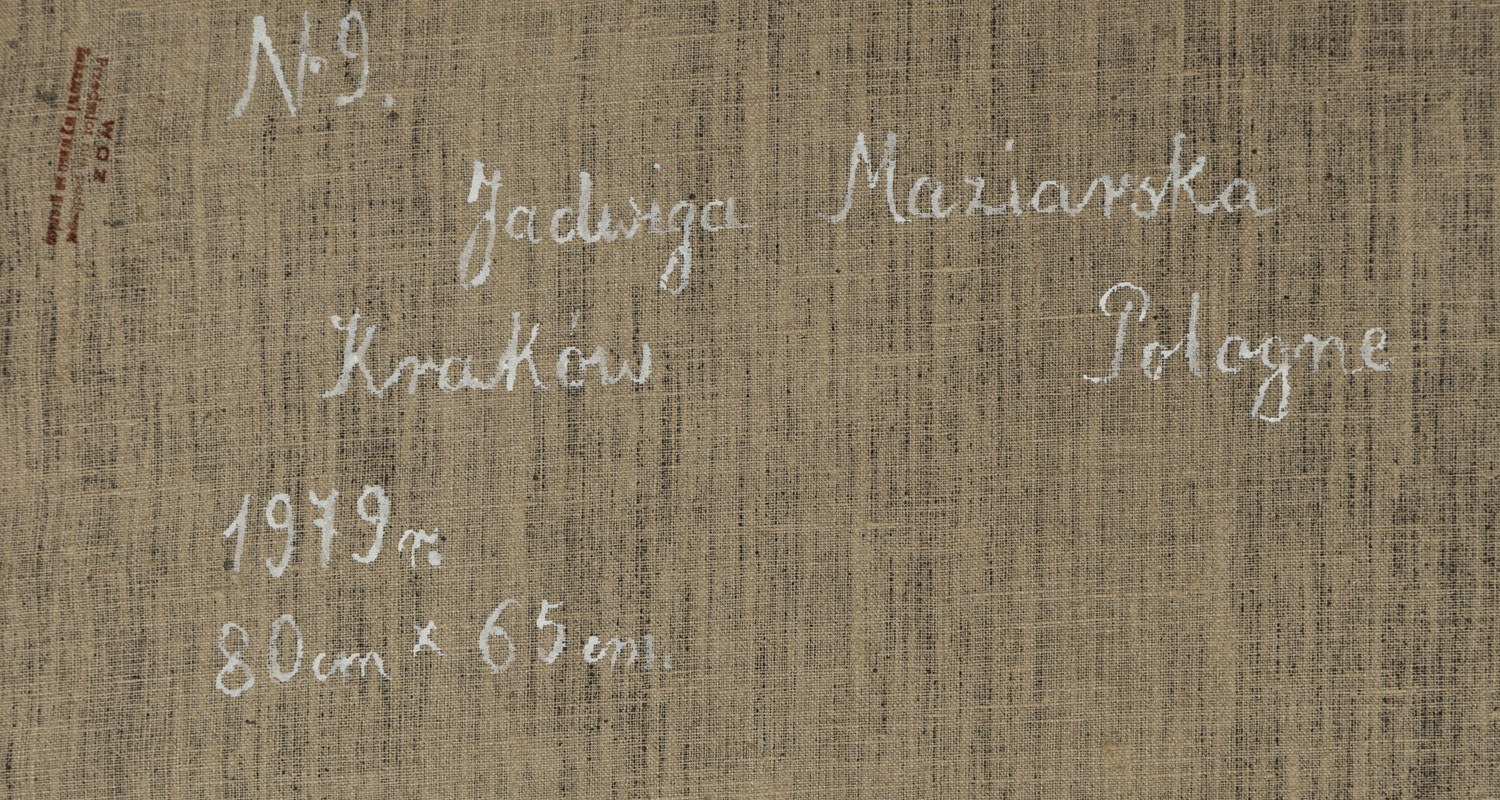 No 9.
Jadwiga Maziarska
Kraków Pologne
1979 r.
80cm x 65cm.
W.O.Z